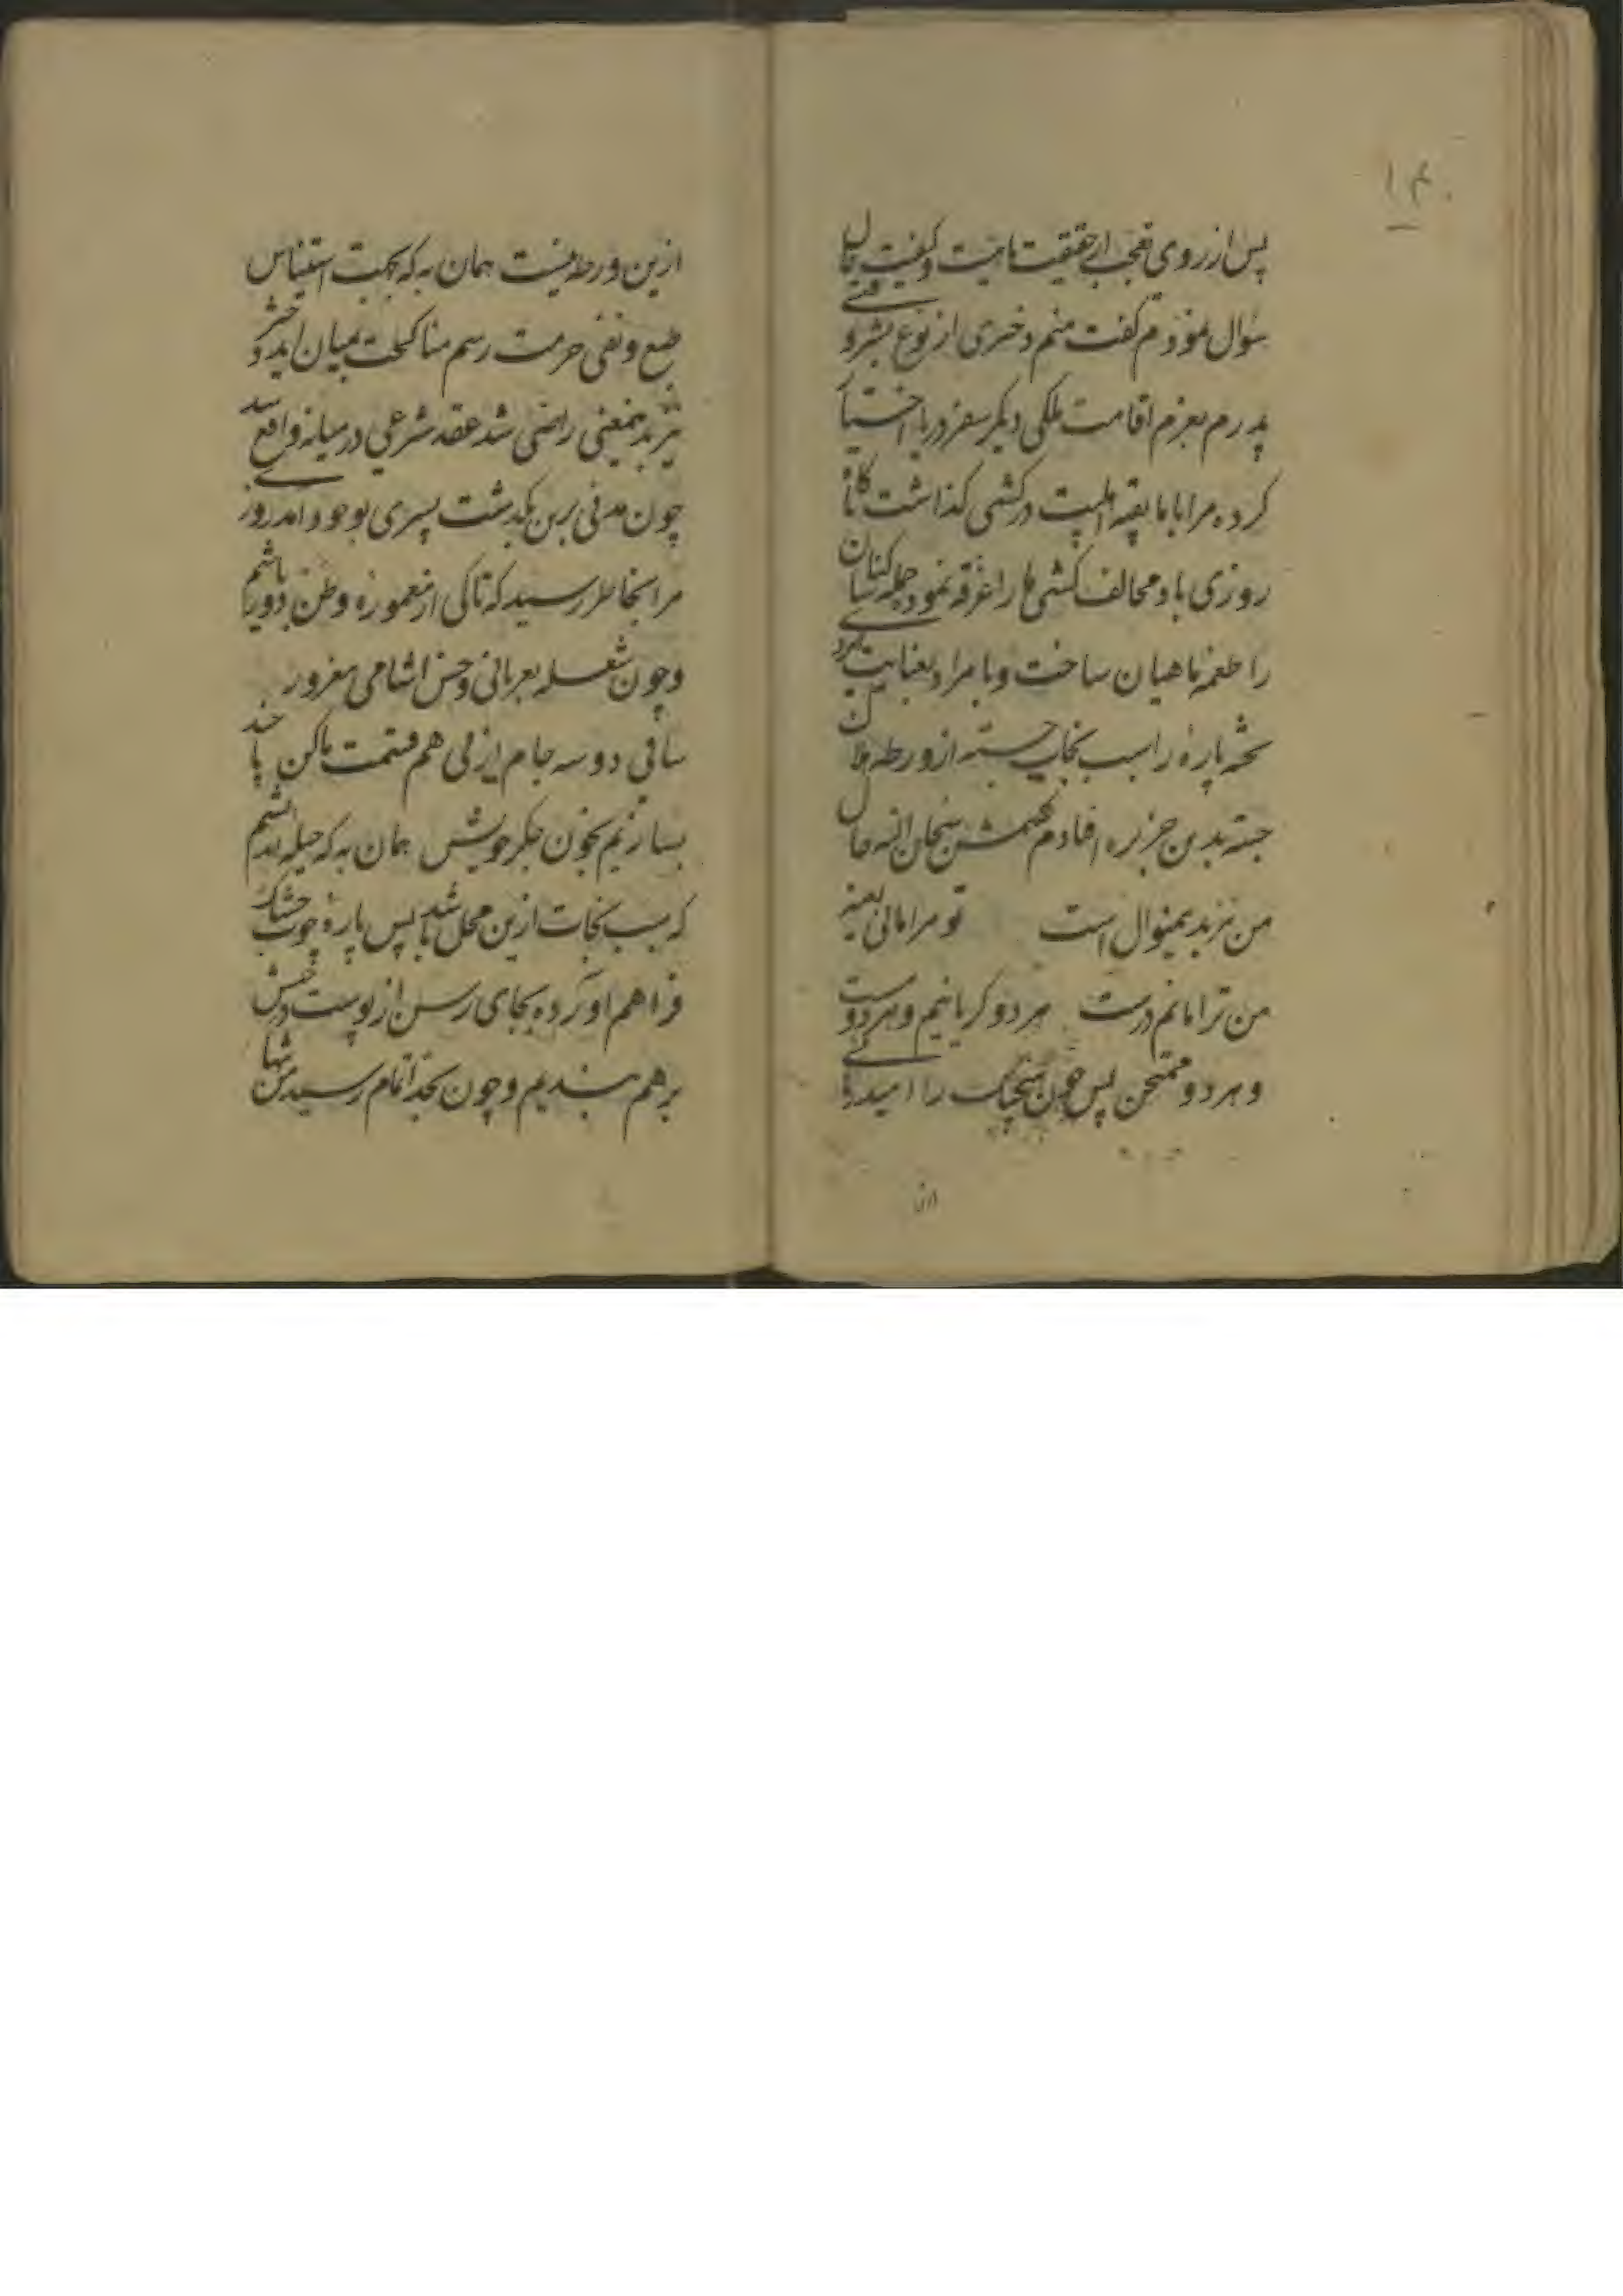 ۱۴۰
پس از روی تعجب از حقیقت ماهیت و کیفیت حال
سؤال نمودم گفت منم دختری از نوع بشر وقتی
پدرم بعزم اقامت ملکی دیگر سفر دریا اختیار
کرده مرا با مابقیه اهلبیت در کشتی گذاشت
روزی باد مخالف کشتی ما را غرقه نمود جمله کسان
را طعمه ماهیان ساخت و نامراد بعنایت
تخته پاره را سبب نجات جسته از ورطه هلاک
جسته بدین جزیره افتادم گفتمش سبحان الله حال
من نیز بدینمنوال است تو مرا مانی بعینه
من ترا مانم درست هر دو گریانیم و هر دو
و هر دو ممتحن پس چون هیچیک را امید رهائی
ازین
ازین ورطه نیست همان به که بجهت استیناس
طبع و نفی حرمت رسم مناکحت بمیان آید دختر
نیز بدینمعنی راضی شد عقد شرعی در میانه واقع شد
چون مدتی برین بگذشت پسری بوجود آمد روزی
مرا بخاطر رسید که تا کی از معموره وطن دور باشم
و چون شعله بعریانی و خس آشامی مغرور
ساقی دو سه جام از پی هم قسمت ما کن تا چند
بسازیم بخون جگر خویش همان به که حیله اندیشم
که سبب نجات ازین محل شد پس پاره چوب خشک
فراهم آورده بجای رسن از پوست درختش
برهم بستیم و چون بحد اتمام رسید من تنها